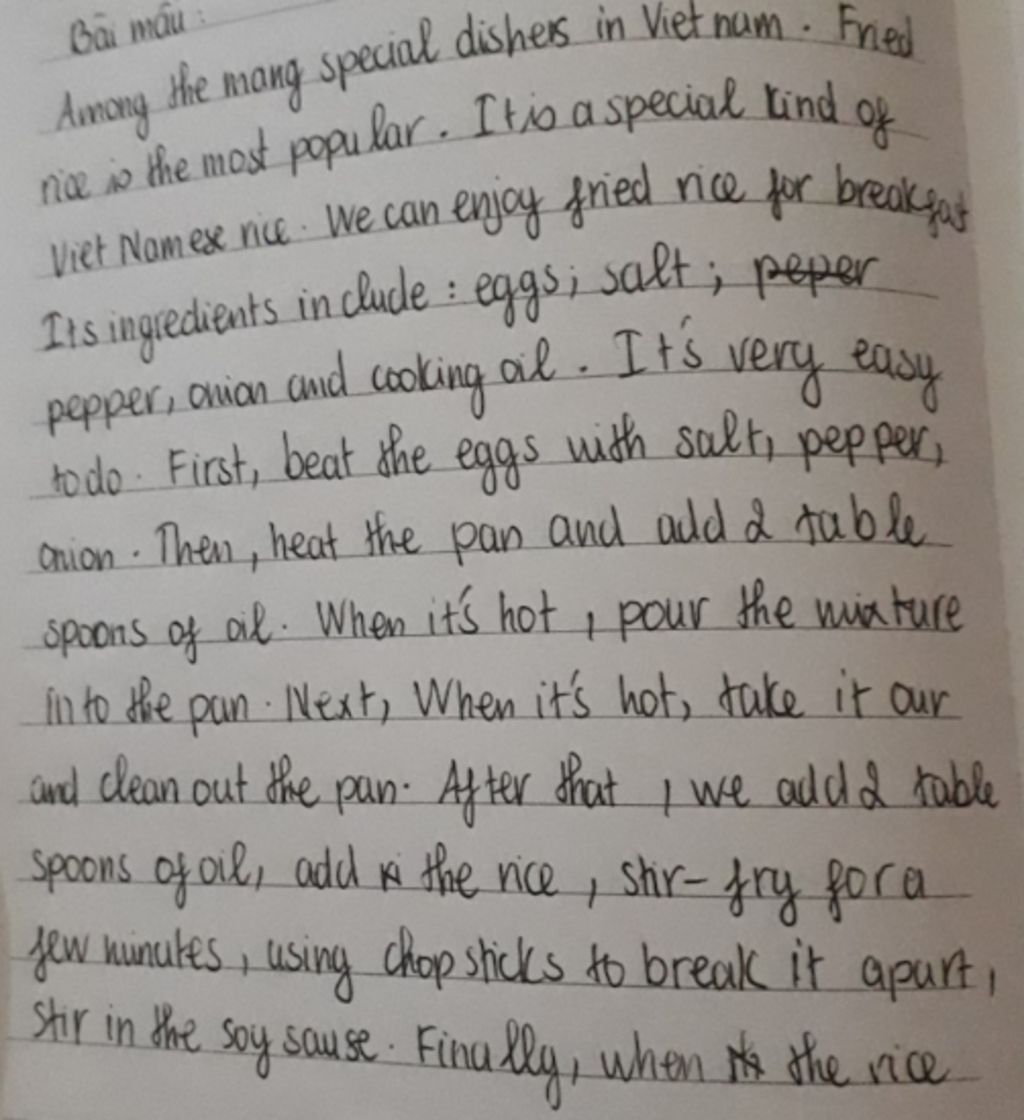 Bài mẫu:
Among the mang special dishers in Viet nam. Fried
rice is the most popular. It is a special kind of
Viet Namese rice. We can enjoy fried rice for breakfast
Its ingredients include: eggs; salt; peper
pepper, onion and cooking oil. It's very easy
to do. First, beat the eggs with salt, pepper,
onion. Then, heat the pan and add 2 table
spoons of oil. When it's hot, pour the mixture
into the pan. Next, When it's hot, take it our
and clean out the pan. After that, we add 2 table
spoons of oil, add the rice, stir-fry for a
few minutes, using chopsticks to break it apart,
stir in the soy sause. Finally, when the rice